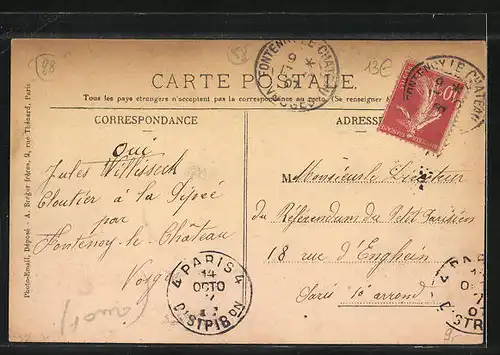 88
58
13€
FONTENOY-LE-CHATEAU
VOSGES
CARTE POSTALE
FONTENOY-LE-CHATEAU
10
Tous les pays étrangers n'acceptent pas la correspondance au recto. (Se renseigner
CORRESPONDANCE
ADRESSE
Oui
Jules
Cloutier à la Pipée
par
Fontenoy-le-Château
Vosges
M Monsieur le Directeur
du Référendum du Petit Parisien
18 rue d'Enghein
Paris 10e arrond
4 PARIS 4
14
OCTO
DISTRIBON
Photo-Email, Déposé - A. Berger frères, 9, rue Thénard, Paris